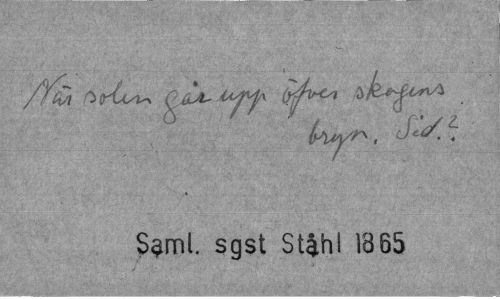 När solen går upp öfver skogens
bryn. Sid.?
Saml. sgst Ståhl 1865